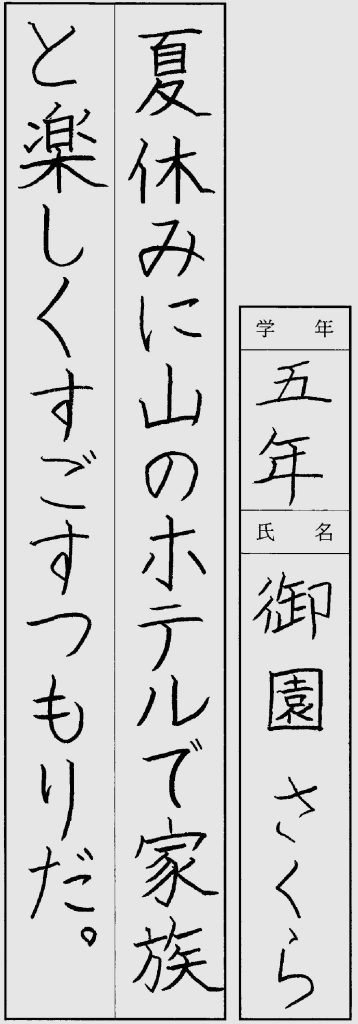 学年
五年
氏名
御園さくら
夏休みに山のホテルで家族
と楽しくすごすつもりだ。